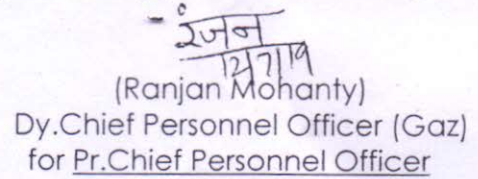 रंजन
12/7/19
(Ranjan Mohanty)
Dy.Chief Personnel Officer (Gaz)
for Pr.Chief Personnel Officer